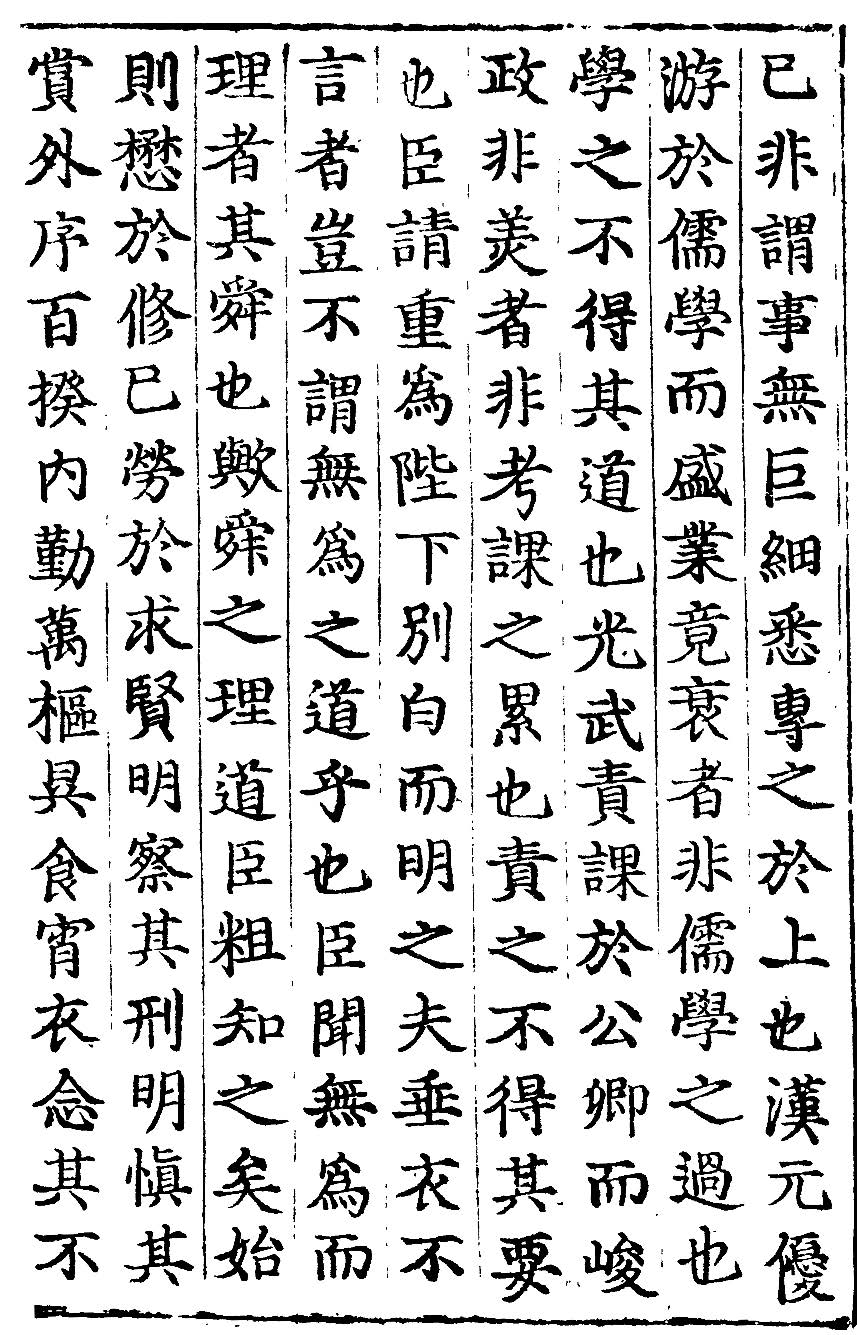 已非謂事無巨細悉專之於上也漢元優
游於儒學而盛業竟衰者非儒學之過也
學之不得其道也光武責課於公卿而峻
政非羙者非考課之累也責之不得其要
也臣請重爲陛下別白而明之夫垂衣不
言者豈不謂無爲之道乎也臣聞無爲而
理者其舜也歟舜之理道臣粗知之矣始
則懋於修已勞於求賢明察其刑明慎其
賞外序百揆内勤萬樞昃食宵衣念其不